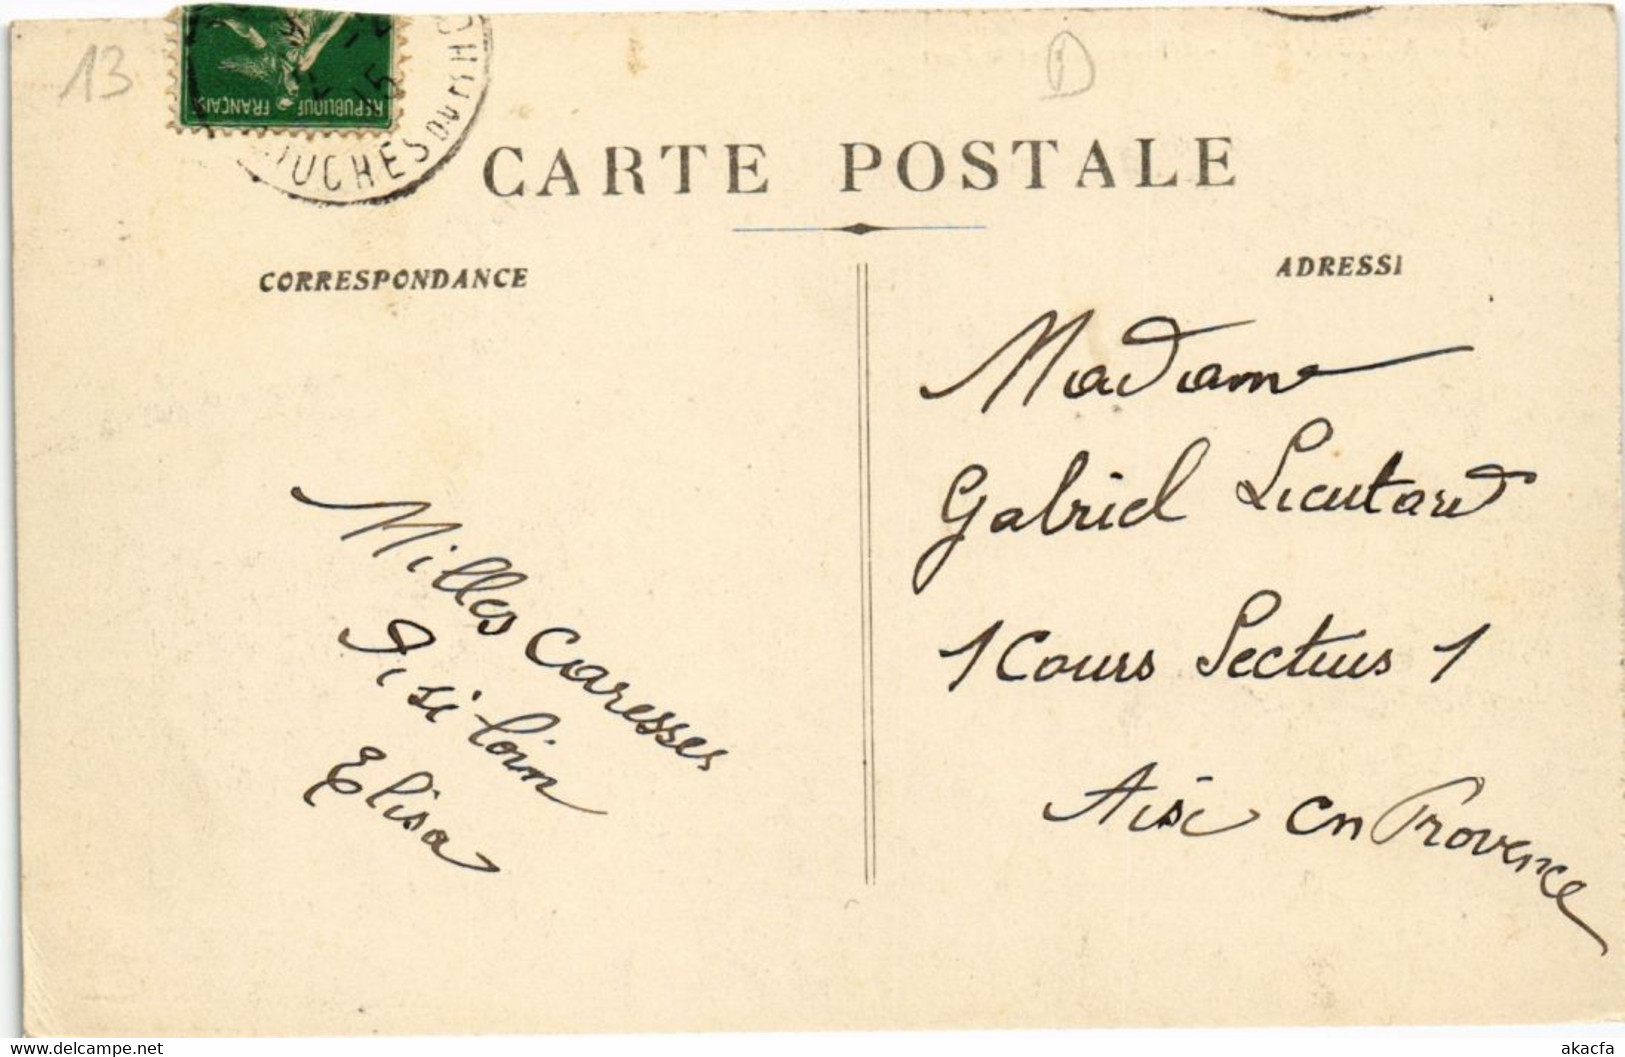 13
RÉPUBLIQUE FRANÇAISE
OUCHES DU RH
CARTE POSTALE
CORRESPONDANCE
ADRESS
Milles caresses
si loin
Elisa
Madame
Gabriel Lieutard
1 Cours Sectius 1
Aix en Provence
akacfa